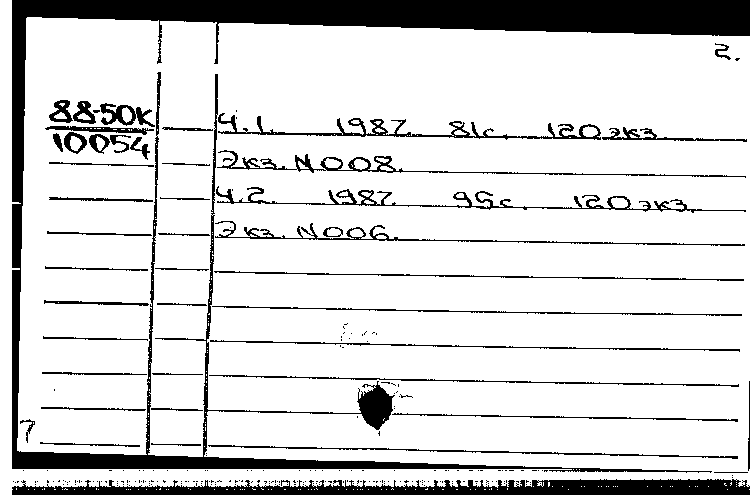 2.
88-50К
10054
Ч.1. 1987. 81с. 120 экз.
Экз. N008.
Ч.2. 1987. 95с. 120 экз.
Экз. N006.
7